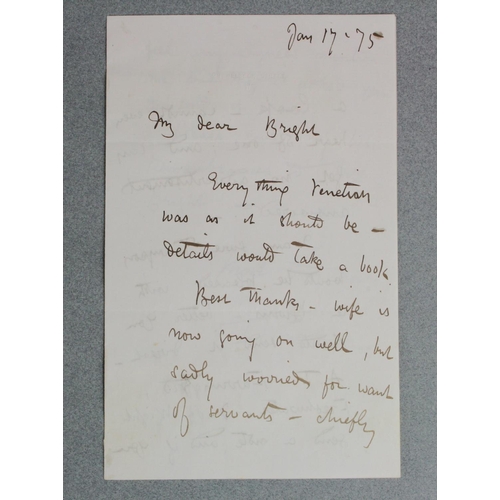 Jan 17 - 75
My dear Bright
Everything Venetian
was as it should be –
details would take a book.
Best thanks – wife is
now going on well, but
sadly worried for want
of servants – chiefly